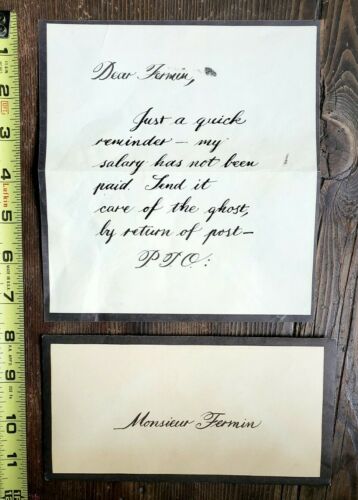 Dear Fermin,
Just a quick
reminder — my
salary has not been
paid. Send it
care of the ghost,
by return of post —
P T O:
Monsieur Fermin
1
2
3
4
Lufkin
5
6
7
8
9
10
11